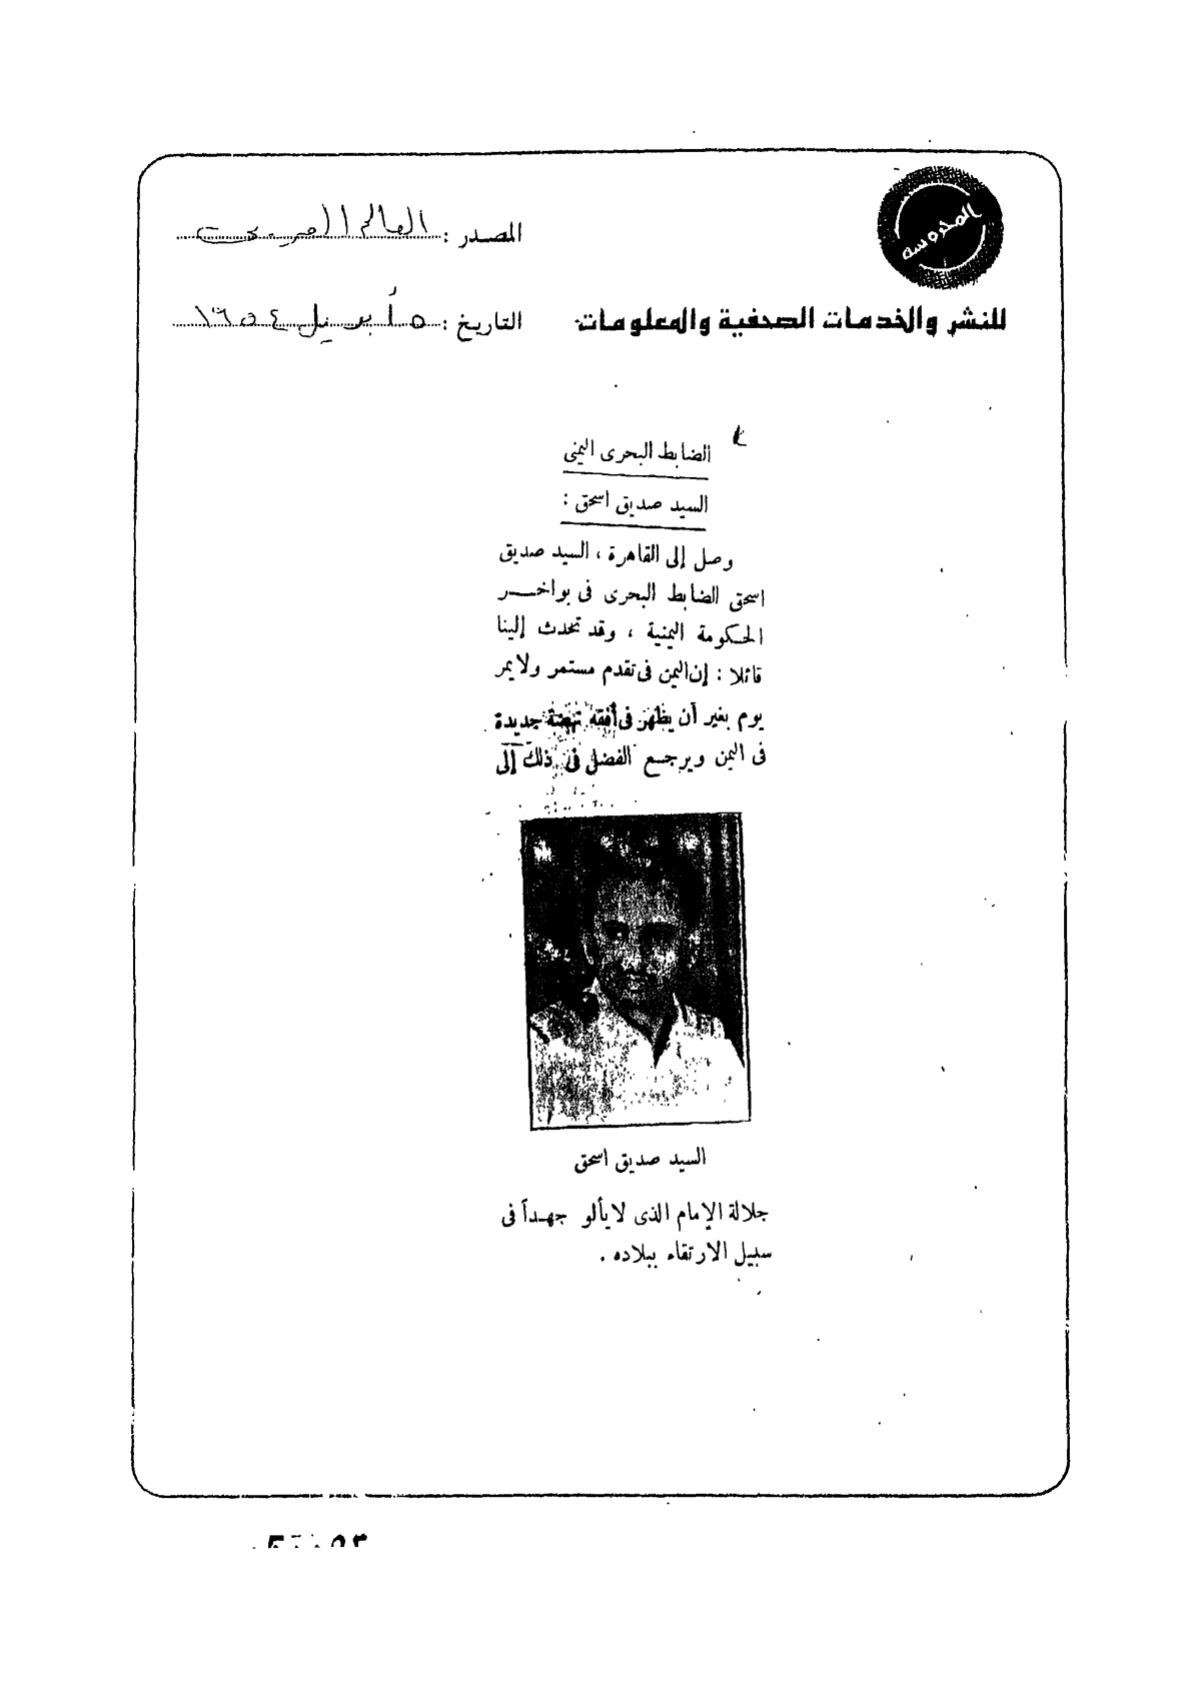 المحروسة
للنشر والخدمات الصحفية والمعلومات
المصدر : العالم العربى
التاريخ : ٥ أبريل ١٩٥٤
الضابط البحرى اليمنى
السيد صديق اسحق :
وصل إلى القاهرة ، السيد صديق
اسحق الضابط البحرى فى بواخـــر
الحكومة اليمنية ، وقد تحدث إلينا
قائلا : إن اليمن فى تقدم مستمر ولا يمر
يوم بغير أن يظهر فى أفقه نهضة جديدة
فى اليمن ويرجع الفضل فى ذلك إلى
السيد صديق اسحق
جلالة الإمام الذى لا يألو جهداً فى
سبيل الارتقاء ببلاده .